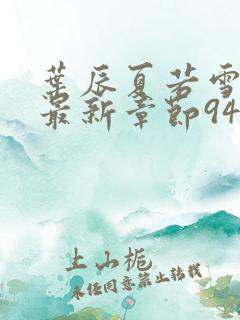 葉辰夏若雪
最新章節94
土山栀
未经同意禁止转载